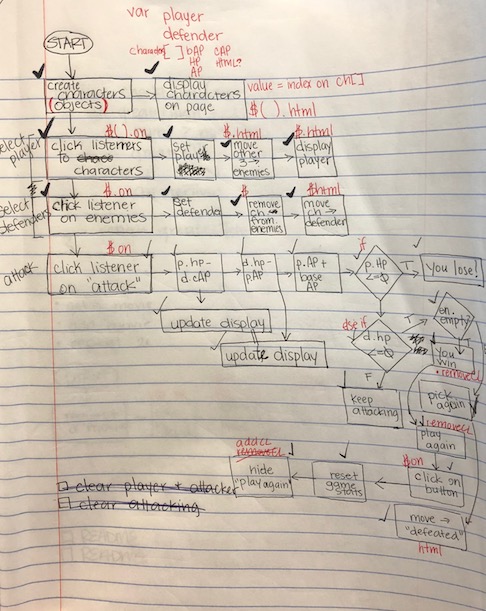 var player
defender
character[ ] bAP CAP
HP HTML?
AP
START
create
characters
(objects)
display
characters
on page
value = index on ch[]
$( ).html
select
player
$( ).on
click listeners
to characters
set
player
$.html
move
other
3 →
enemies
$.html
display
player
select
defenders
$.on
click listener
on enemies
set
defender
$
remove
ch →
from
enemies
$html
move
ch →
defender
attack
$on
click listener
on "attack"
p.hp-
d.cAP
d.hp-
p.AP
p.AP +
base
AP
if
p.HP
<=0
T
You lose!
update display
update display
else if
d.hp
<=0
T
en.
empty?
T
You
win
.removeCl
F
keep
attacking
pick
again
.removeCL
play
again
$on
click on
button
reset
game
stats
addCL
removeCL
hide
"play again"
move →
"defeated"
html
clear player + attacker
clear attacking